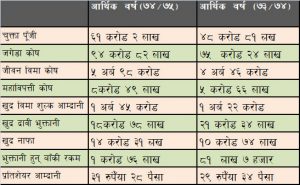 आर्थिक वर्ष (७४/७५) आर्थिक वर्ष (७३/७४)
चुक्ता पूँजी ६१ करोड २ लाख ४८ करोड ८१ लाख
जगेडा कोष ९४ करोड ८२ लाख ७५ करोड २४ लाख
जीवन विमा कोष ५ अर्ब ९८ करोड ४ अर्ब ६६ करोड
महाविपत्ती कोष ८करोड ४९ लाख ६ करोड ६५ लाख
खुद विमा शुल्क आम्दानी १ अर्ब ४५ करोड १ अर्ब २२ करोड
खुद दावी भुक्तानी १८करोड ७८ लाख २१ करोड ३४ लाख
खुद नाफा १४ करोड ३१ लाख १० करोड ७४ लाख
भुक्तानी हुन् बाँकी रकम १ करोड ७६ लाख ८१ लाख ७ हजार
प्रतिशेयर आम्दानी ३१ रुपैंया २८ पैसा २९ रुपैंया ३४ पैसा